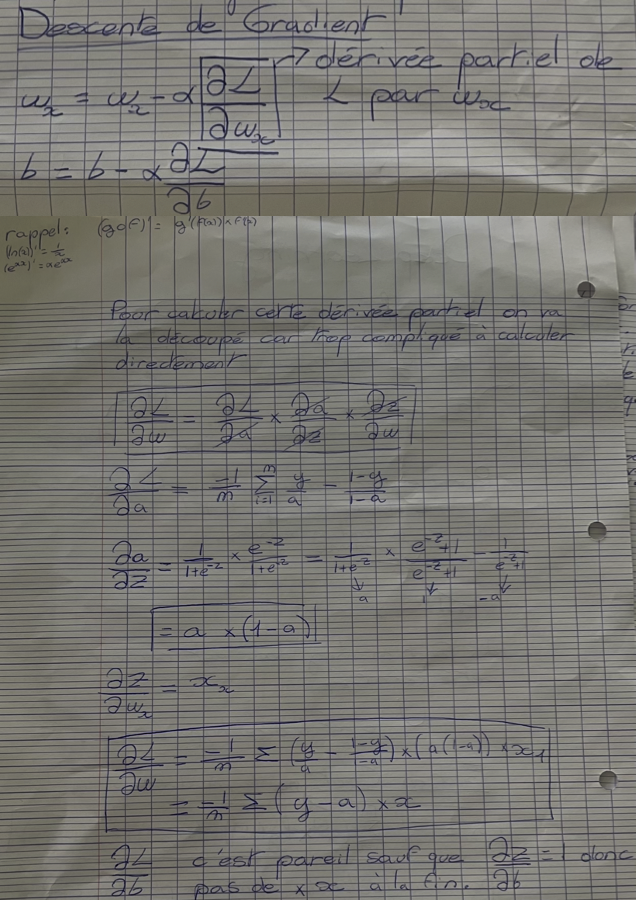 Descente de Gradient
w_x = w_x - α ∂L/∂w_x → dérivée partiel de
L par w_x
b = b - α ∂L/∂b
rappel: (g∘f)' = g'(f(x)) × f'(x)
(ln(x))' = 1/x
Pour calculer cette dérivée partiel on va
la découpé car trop compliqué à calculer
directement
∂L/∂w = ∂L/∂a × ∂a/∂z × ∂z/∂w
∂L/∂a = -1/m Σ_{i=1}^{m} y/a - (1-y)/(1-a)
∂a/∂z = 1/(1+e^-z) × e^-z/(1+e^-z) = 1/(1+e^-z) × (e^-z+1)/(e^-z+1) - 1/(e^-z+1)
↓ ↓ ↓
a 1 -a
= a × (1-a)
∂z/∂w_x = x_x
∂L/∂w = -1/m Σ (y/a - (1-y)/(-a)) × (a(1-a)) × x_1
= -1/m Σ (y-a) × x
∂L/∂b c'est pareil sauf que ∂z/∂b = 1 donc
pas de × x à la fin.